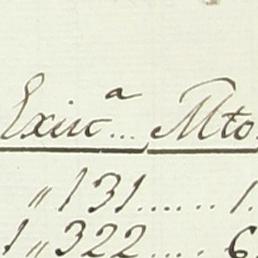 Exiscᵃ... Mto.
"131...... 1.
1"322.... 6.